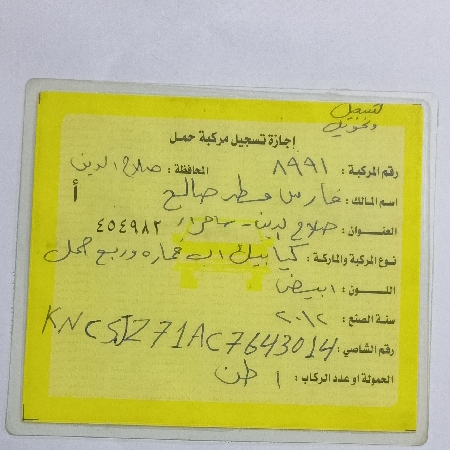 للتسجيل
وتخويل
اجازة تسجيل مركبة حمل
رقم المركبة : ٨٩٩١ المحافظة : صلاح الدين
اسم المالك : فارس مطر صالح أ
العنوان : صلاح الدين - سامراء ٤٥٤٩٨٢
نوع المركبة والماركة : كيا بيك اب قماره وربع حمل
اللون : ابيض
سنة الصنع : ٢٠١٢
رقم الشاصي : KNCSJZ71AC7643014
الحمولة او عدد الركاب : ١ طن